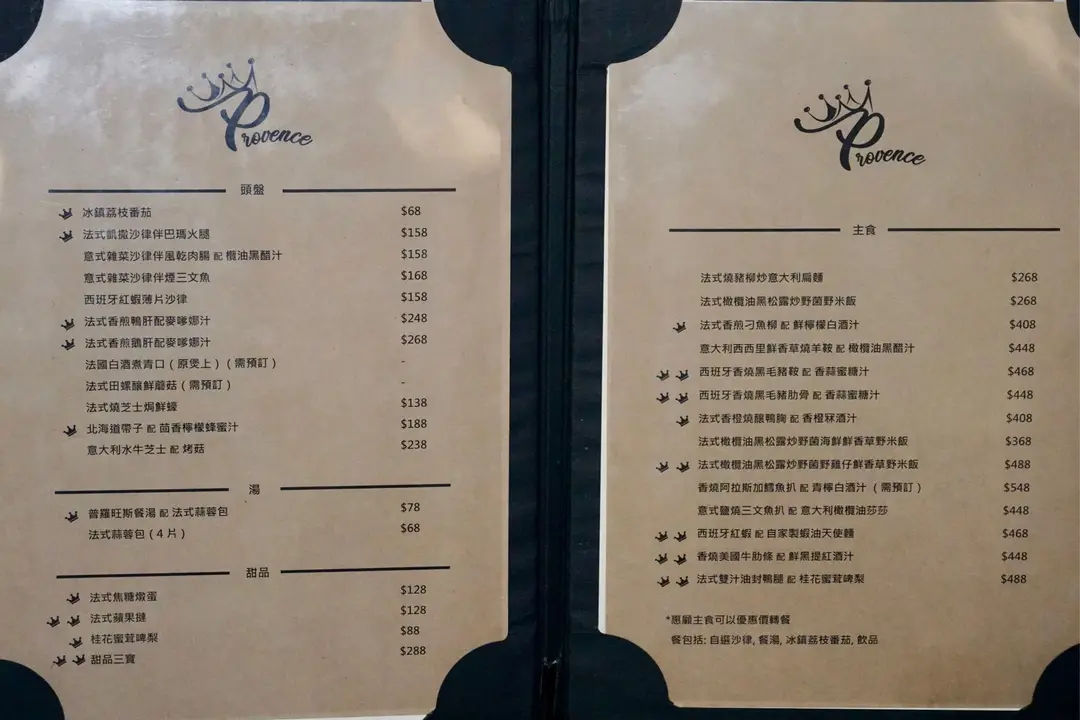 Provence
頭盤
冰鎮荔枝番茄 $68
法式凱撒沙律伴巴瑪火腿 $158
意式雜菜沙律伴風乾肉腸 配 欖油黑醋汁 $158
意式雜菜沙律伴煙三文魚 $168
西班牙紅蝦薄片沙律 $158
法式香煎鴨肝配麥嗲娜汁 $248
法式香煎鵝肝配麥嗲娜汁 $268
法國白酒煮青口（原煲上）（需預訂） -
法式田螺釀鮮蘑菇（需預訂） -
法式燒芝士焗鮮蠔 $138
北海道帶子 配 茴香檸檬蜂蜜汁 $188
意大利水牛芝士 配 烤菇 $238
湯
普羅旺斯餐湯 配 法式蒜蓉包 $78
法式蒜蓉包（4片） $68
甜品
法式焦糖燉蛋 $128
法式蘋果撻 $128
桂花蜜茸啤梨 $88
甜品三寶 $288
Provence
主食
法式燒豬柳炒意大利扁麵 $268
法式橄欖油黑松露炒野菌野米飯 $268
法式香煎刁魚柳 配 鮮檸檬白酒汁 $408
意大利西西里鮮香草燒羊鞍 配 橄欖油黑醋汁 $448
西班牙香燒黑毛豬鞍 配 香蒜蜜糖汁 $468
西班牙香燒黑毛豬肋骨 配 香蒜蜜糖汁 $448
法式香橙燒釀鴨胸 配 香橙冧酒汁 $408
法式橄欖油黑松露炒野菌海鮮鮮香草野米飯 $368
法式橄欖油黑松露炒野菌野雞仔鮮香草野米飯 $488
香燒阿拉斯加鱈魚扒 配 青檸白酒汁（需預訂） $548
意式鹽燒三文魚扒 配 意大利橄欖油莎莎 $448
西班牙紅蝦 配 自家製蝦油天使麵 $468
香燒美國牛肋條 配 鮮黑提紅酒汁 $448
法式雙汁油封鴨腿 配 桂花蜜茸啤梨 $488
*惠顧主食可以優惠價轉餐
餐包括: 自選沙律, 餐湯, 冰鎮荔枝番茄, 飲品